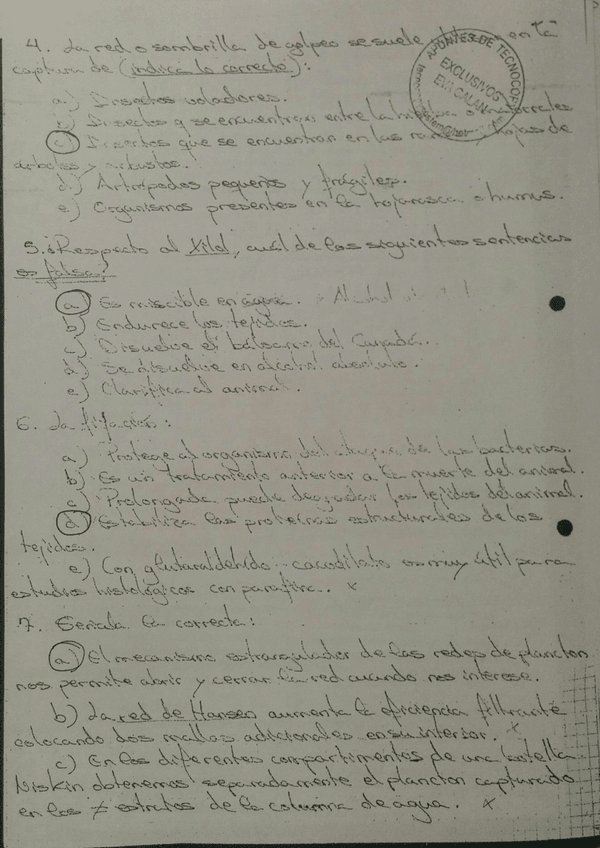 4. La red o sombrilla de golpeo se suele en la
captura de (indica lo correcto):
a) Insectos voladores.
b) Insectos q se encuentran entre la o matorrales
c) Insectos que se encuentran en las ramas y hojas de
árboles y arbustos.
d) Artrópodos pequeños y frágiles.
e) Organismos presentes en la hojarasca o humus.
APUNTES DE TECNOCOP
EXCLUSIVOS
EVA GALAN
5. ¿Respecto al Xilol, cuál de las siguientes sentencias
es falsa?
a) Es miscible en agua. Alcohol
b) Endurece los tejidos.
c) Disuelve el bálsamo del Canadá.
d) Se disuelve en alcohol absoluto.
e) Clarifica al animal.
6. La fijación:
a) Protege al organismo del ataque de las bacterias.
b) Es un tratamiento anterior a la muerte del animal.
c) Prolongada puede degradar los tejidos del animal.
d) Estabiliza las proteínas estructurales de los
tejidos.
e) Con glutaraldehído - cacodilato es muy útil para
estudios histológicos con parafina. x
7. Señala la correcta:
a) El mecanismo estrangulador de las redes de plancton
nos permite abrir y cerrar la red cuando nos interese.
b) La red de Hansen aumenta la eficiencia filtrante
colocando dos mallas adicionales en su interior. x
c) En los diferentes compartimentos de una botella
Niskin obtenemos separadamente el plancton capturado
en los ≠ estratos de la columna de agua. x